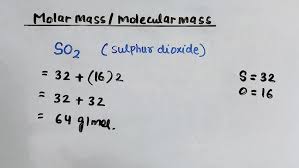 Molar mass / molecular mass
SO2 (sulphur dioxide)
= 32 + (16) 2
= 32 + 32
= 64 g/mol.
S = 32
O = 16